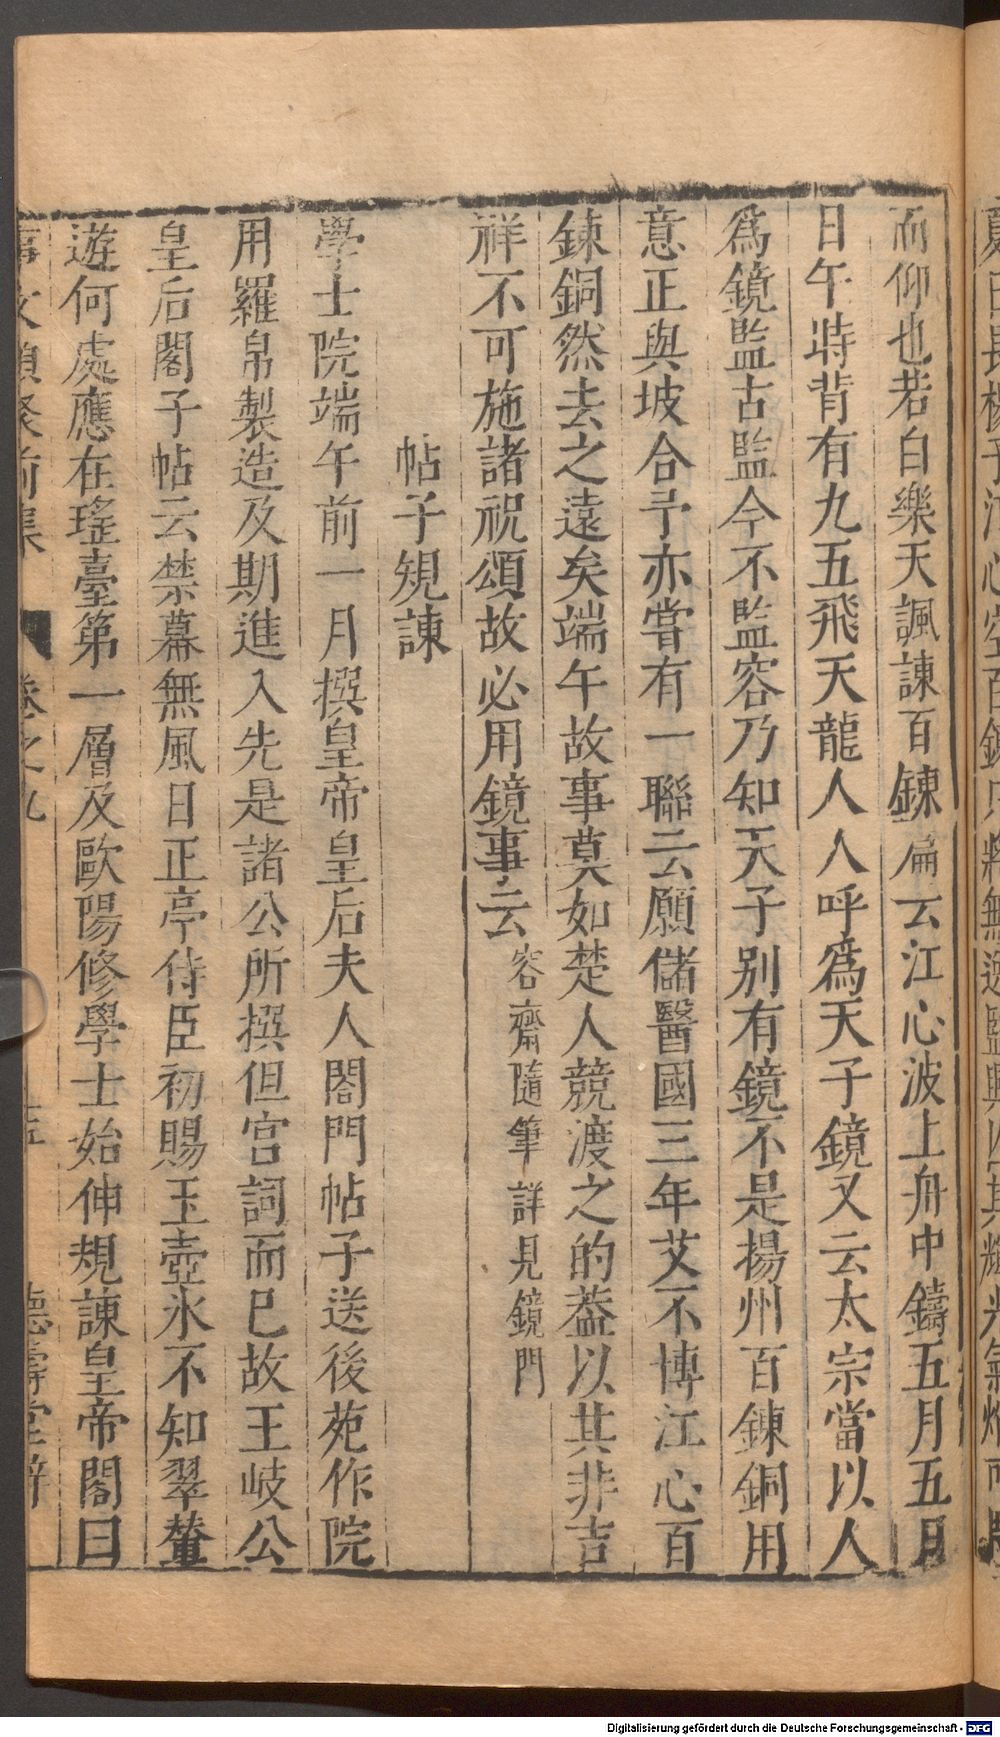 而仰也若白樂天諷諫百鍊篇云江心波上舟中鑄五月五日
日午時背有九五飛天龍人人呼爲天子鏡又云太宗當以人
爲鏡監古監今不監容乃知天子別有鏡不是揚州百鍊銅用
意正與坡合予亦嘗有一聯云願儲醫國三年艾不博江心百
鍊銅然去之遠矣端午故事莫如楚人競渡之的葢以其非吉
祥不可施諸祝頌故必用鏡事云容齋隨筆詳見鏡門
帖子規諫
學士院端午前一月撰皇帝皇后夫人閤門帖子送後苑作院
用羅帛製造及期進入先是諸公所撰但宫詞而已故王岐公
皇后閣子帖云禁幕無風日正亭侍臣初賜玉壺氷不知翠輦
遊何處應在瑤臺第一層及歐陽修學士始伸規諫皇帝閣曰
事文類聚前集 卷之九 德壽堂梓
Digitalisierung gefördert durch die Deutsche Forschungsgemeinschaft - DFG